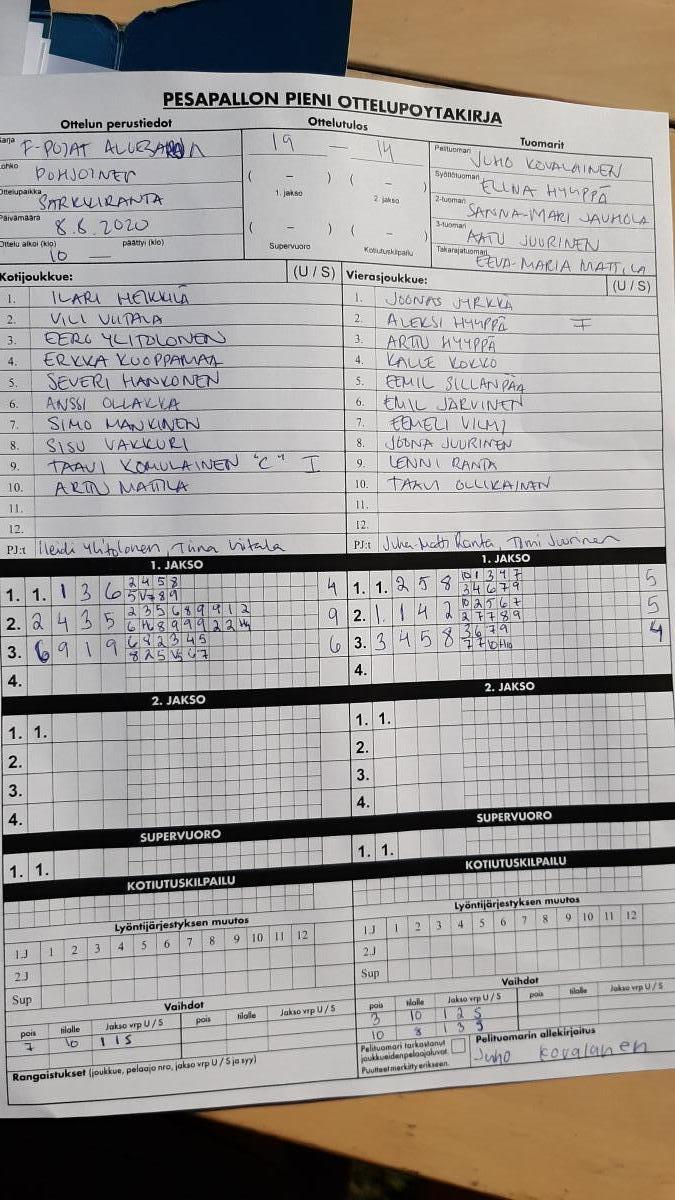 PESÄPALLON PIENI OTTELUPÖYTÄKIRJA
Ottelun perustiedot
Sarja F-POJAT
Lohko POHJOINEN
Ottelupaikka SARKKIRANTA
Päivämäärä 8.6.2020
Ottelu alkoi (klo) 10 päättyi (klo) —
Ottelutulos
19 — 14
( – ) ( – )
1. jakso 2. jakso
( – ) ( – )
Supervuoro Kotiutuskilpailu
Tuomarit
Pelituomari JUHO KOVALAINEN
Syöttötuomari ELINA HYYPPÄ
2-tuomari SANNA-MARI JAUHOLA
3-tuomari AATU JUURINEN
Takarajatuomari EEVA-MARIA MATTILA
Kotijoukkue: (U / S)
1. ILARI HEIKKILÄ
2. VILI VIITALA
3. EERO YLITOLONEN
4. ERKKA KUOPPAMAA
5. SEVERI HANKONEN
6. ANSSI OLLAKKA
7. SIMO MANKINEN
8. SISU VAKKURI
9. TAAVI KOMULAINEN "C" I
10. ARTTU MATTILA
11.
12.
PJ:t Heidi Ylitolonen, Tiina Viitala
Vierasjoukkue: (U / S)
1. JOONAS JYRKKÄ
2. ALEKSI HYYPPÄ I
3. ARTTU HYYPPÄ
4. KALLE KOKKO
5. EEMIL SILLANPÄÄ
6. EMIL JÄRVINEN
7. EEMELI VILMI
8. JOONA JUURINEN
9. LENNI RANTA
10. TAAVI OLLIKAINEN
11.
12.
PJ:t Juha-Matti Ranta, Timi Juurinen
1. JAKSO
1. 1. 1 3 6 2 4 5 8 4
2. 2 4 3 5 2 3 5 6 8 9 9 1 2 9
3. 6 9 1 9 6 8 2 3 4 5 6
4.
2. JAKSO
1. 1.
2.
3.
4.
SUPERVUORO
1. 1.
KOTIUTUSKILPAILU
Lyöntijärjestyksen muutos
1.J 1 2 3 4 5 6 7 8 9 10 11 12
2.J
Sup
Vaihdot
pois tilalle Jakso vrp U / S pois tilalle Jakso vrp U / S
7 10 1 1 S
Rangaistukset (joukkue, pelaaja nro, jakso vrp U / S ja syy)
1. JAKSO
1. 1. 2 5 8 10 1 3 4 7 5
3 4 6 7 9
2. 1. 1 4 2 10 2 5 6 7 5
2 7 7 8 9
3. 3 4 5 8 3 6 7 9 4
4.
2. JAKSO
1. 1.
2.
3.
4.
SUPERVUORO
1. 1.
KOTIUTUSKILPAILU
Lyöntijärjestyksen muutos
1.J 1 2 3 4 5 6 7 8 9 10 11 12
2.J
Sup
Vaihdot
pois tilalle Jakso vrp U / S pois tilalle Jakso vrp U / S
3 10 1 2 S
10 8 1 3 S
Pelituomari tarkastanut
joukkueiden pelaajaluvat.
Puutteet merkitty erikseen.
Pelituomarin allekirjoitus
Juho Kovalanen